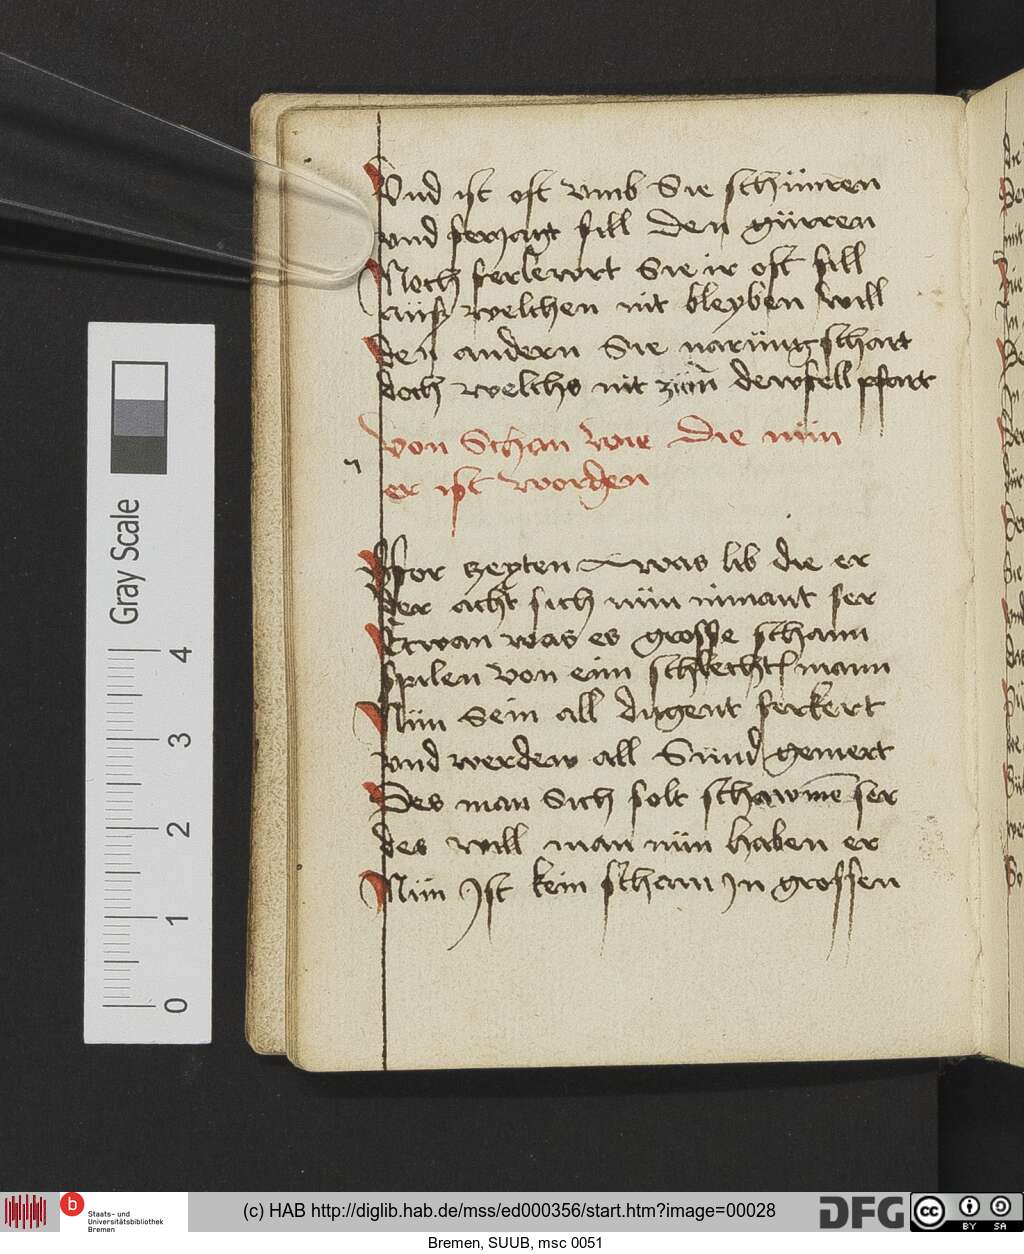 Vnd ist oft vmb Sie schnüren
vnd ferzagt fill den gürren
Noch ferlewrt Sie ir oft fill
welchen nit bleyben will
den andern Sie narüngschart
doch welchs nit zům dewfell pfart
Von Scham wie die nün
er ist worden
Vfor zeyten was lib die er
der acht sich nün nimant ser
Etwan was es grosse scham
spilen von eim schlechten mann
Nün Sein all dugent ferkert
vnd werden all Sünd gemert
Des man Sich solt schawmē ser
des will man nün haben er
Nün Jst kein scham Jn grossen
Gray Scale
4
3
2
1
0
b
Staats- und
Universitätsbibliothek
Bremen
(c) HAB http://diglib.hab.de/mss/ed000356/start.htm?image=00028
DFG
cc BY SA
Bremen, SUUB, msc 0051